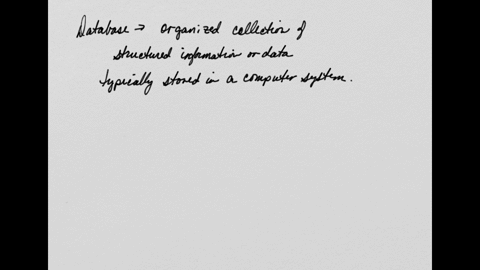 Database → organized collection of
structured information or data
typically stored in a computer system.